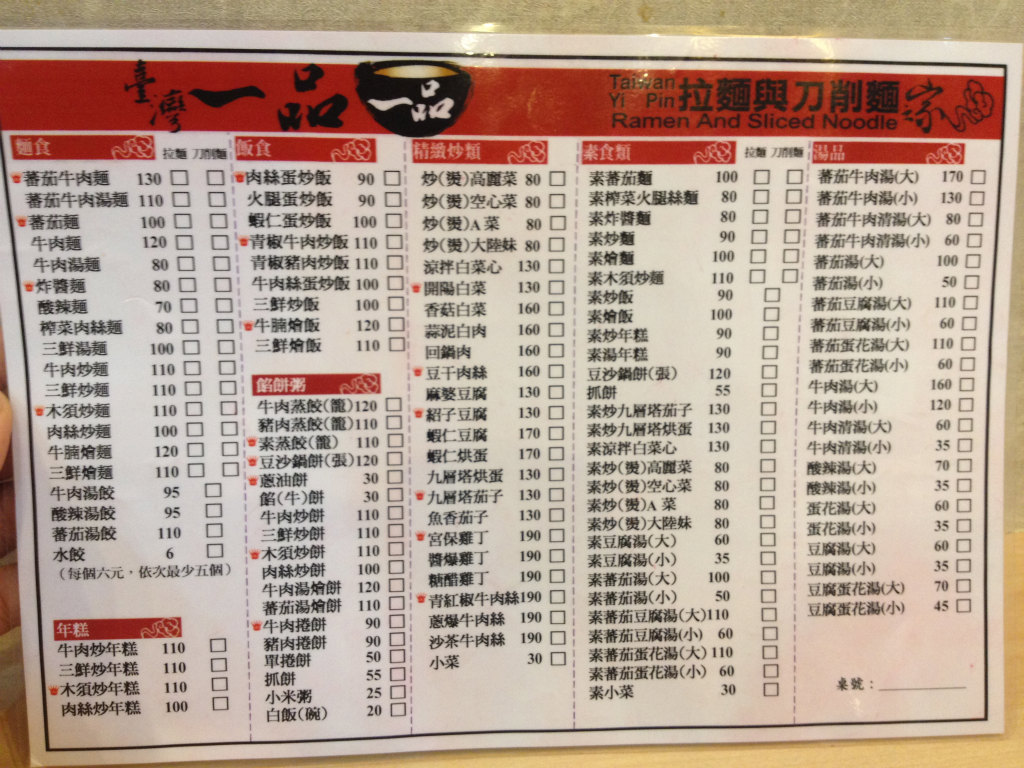 臺灣一品
一品
Taiwan
Yi Pin
拉麵與刀削麵
Ramen And Sliced Noodle
麵食 拉麵 刀削麵
蕃茄牛肉麵 130 □ □
蕃茄牛肉湯麵 110 □ □
蕃茄麵 100 □ □
牛肉麵 120 □ □
牛肉湯麵 80 □ □
炸醬麵 80 □ □
酸辣麵 70 □ □
榨菜肉絲麵 80 □ □
三鮮湯麵 100 □ □
牛肉炒麵 110 □ □
三鮮炒麵 110 □ □
木須炒麵 110 □ □
肉絲炒麵 100 □ □
牛腩燴麵 120 □ □
三鮮燴麵 110 □ □
牛肉湯餃 95 □
酸辣湯餃 95 □
蕃茄湯餃 110 □
水餃 6 □
(每個六元，依次最少五個)
年糕
牛肉炒年糕 110 □
三鮮炒年糕 110 □
木須炒年糕 110 □
肉絲炒年糕 100 □
飯食
肉絲蛋炒飯 90 □
火腿蛋炒飯 90 □
蝦仁蛋炒飯 100 □
青椒牛肉炒飯 110 □
青椒豬肉炒飯 110 □
牛肉絲蛋炒飯 100 □
三鮮炒飯 100 □
牛腩燴飯 120 □
三鮮燴飯 110 □
餡餅粥
牛肉蒸餃(籠) 120 □
豬肉蒸餃(籠) 110 □
素蒸餃(籠) 110 □
豆沙鍋餅(張) 120 □
蔥油餅 30 □
餡(牛)餅 30 □
牛肉炒餅 110 □
三鮮炒餅 110 □
木須炒餅 110 □
肉絲炒餅 100 □
牛肉湯燴餅 120 □
蕃茄湯燴餅 110 □
牛肉捲餅 90 □
豬肉捲餅 90 □
單捲餅 50 □
抓餅 55 □
小米粥 25 □
白飯(碗) 20 □
精緻炒類
炒(燙)高麗菜 80 □
炒(燙)空心菜 80 □
炒(燙)A菜 80 □
炒(燙)大陸妹 80 □
涼拌白菜心 130 □
開陽白菜 130 □
香菇白菜 160 □
蒜泥白肉 160 □
回鍋肉 160 □
豆干肉絲 160 □
麻婆豆腐 130 □
紹子豆腐 130 □
蝦仁豆腐 170 □
蝦仁烘蛋 170 □
九層塔烘蛋 130 □
九層塔茄子 130 □
魚香茄子 130 □
宮保雞丁 190 □
醬爆雞丁 190 □
糖醋雞丁 190 □
青紅椒牛肉絲 190 □
蔥爆牛肉絲 190 □
沙茶牛肉絲 190 □
小菜 30 □
素食類 拉麵 刀削麵
素蕃茄麵 100 □ □
素榨菜火腿絲麵 80 □ □
素炸醬麵 80 □ □
素炒麵 90 □ □
素燴麵 100 □ □
素木須炒麵 110 □ □
素炒飯 90 □
素燴飯 100 □
素炒年糕 90 □
素湯年糕 90 □
豆沙鍋餅(張) 120 □
抓餅 55 □
素炒九層塔茄子 130 □
素炒九層塔烘蛋 130 □
素涼拌白菜心 130 □
素炒(燙)高麗菜 80 □
素炒(燙)空心菜 80 □
素炒(燙)A菜 80 □
素炒(燙)大陸妹 80 □
素豆腐湯(大) 60 □
素豆腐湯(小) 35 □
素蕃茄湯(大) 100 □
素蕃茄湯(小) 50 □
素蕃茄豆腐湯(大) 110 □
素蕃茄豆腐湯(小) 60 □
素蕃茄蛋花湯(大) 110 □
素蕃茄蛋花湯(小) 60 □
素小菜 30 □
湯品
蕃茄牛肉湯(大) 170 □
蕃茄牛肉湯(小) 130 □
蕃茄牛肉清湯(大) 80 □
蕃茄牛肉清湯(小) 60 □
蕃茄湯(大) 100 □
蕃茄湯(小) 50 □
蕃茄豆腐湯(大) 110 □
蕃茄豆腐湯(小) 60 □
蕃茄蛋花湯(大) 110 □
蕃茄蛋花湯(小) 60 □
牛肉湯(大) 160 □
牛肉湯(小) 120 □
牛肉清湯(大) 60 □
牛肉清湯(小) 35 □
酸辣湯(大) 70 □
酸辣湯(小) 35 □
蛋花湯(大) 60 □
蛋花湯(小) 35 □
豆腐湯(大) 60 □
豆腐湯(小) 35 □
豆腐蛋花湯(大) 70 □
豆腐蛋花湯(小) 45 □
桌號：